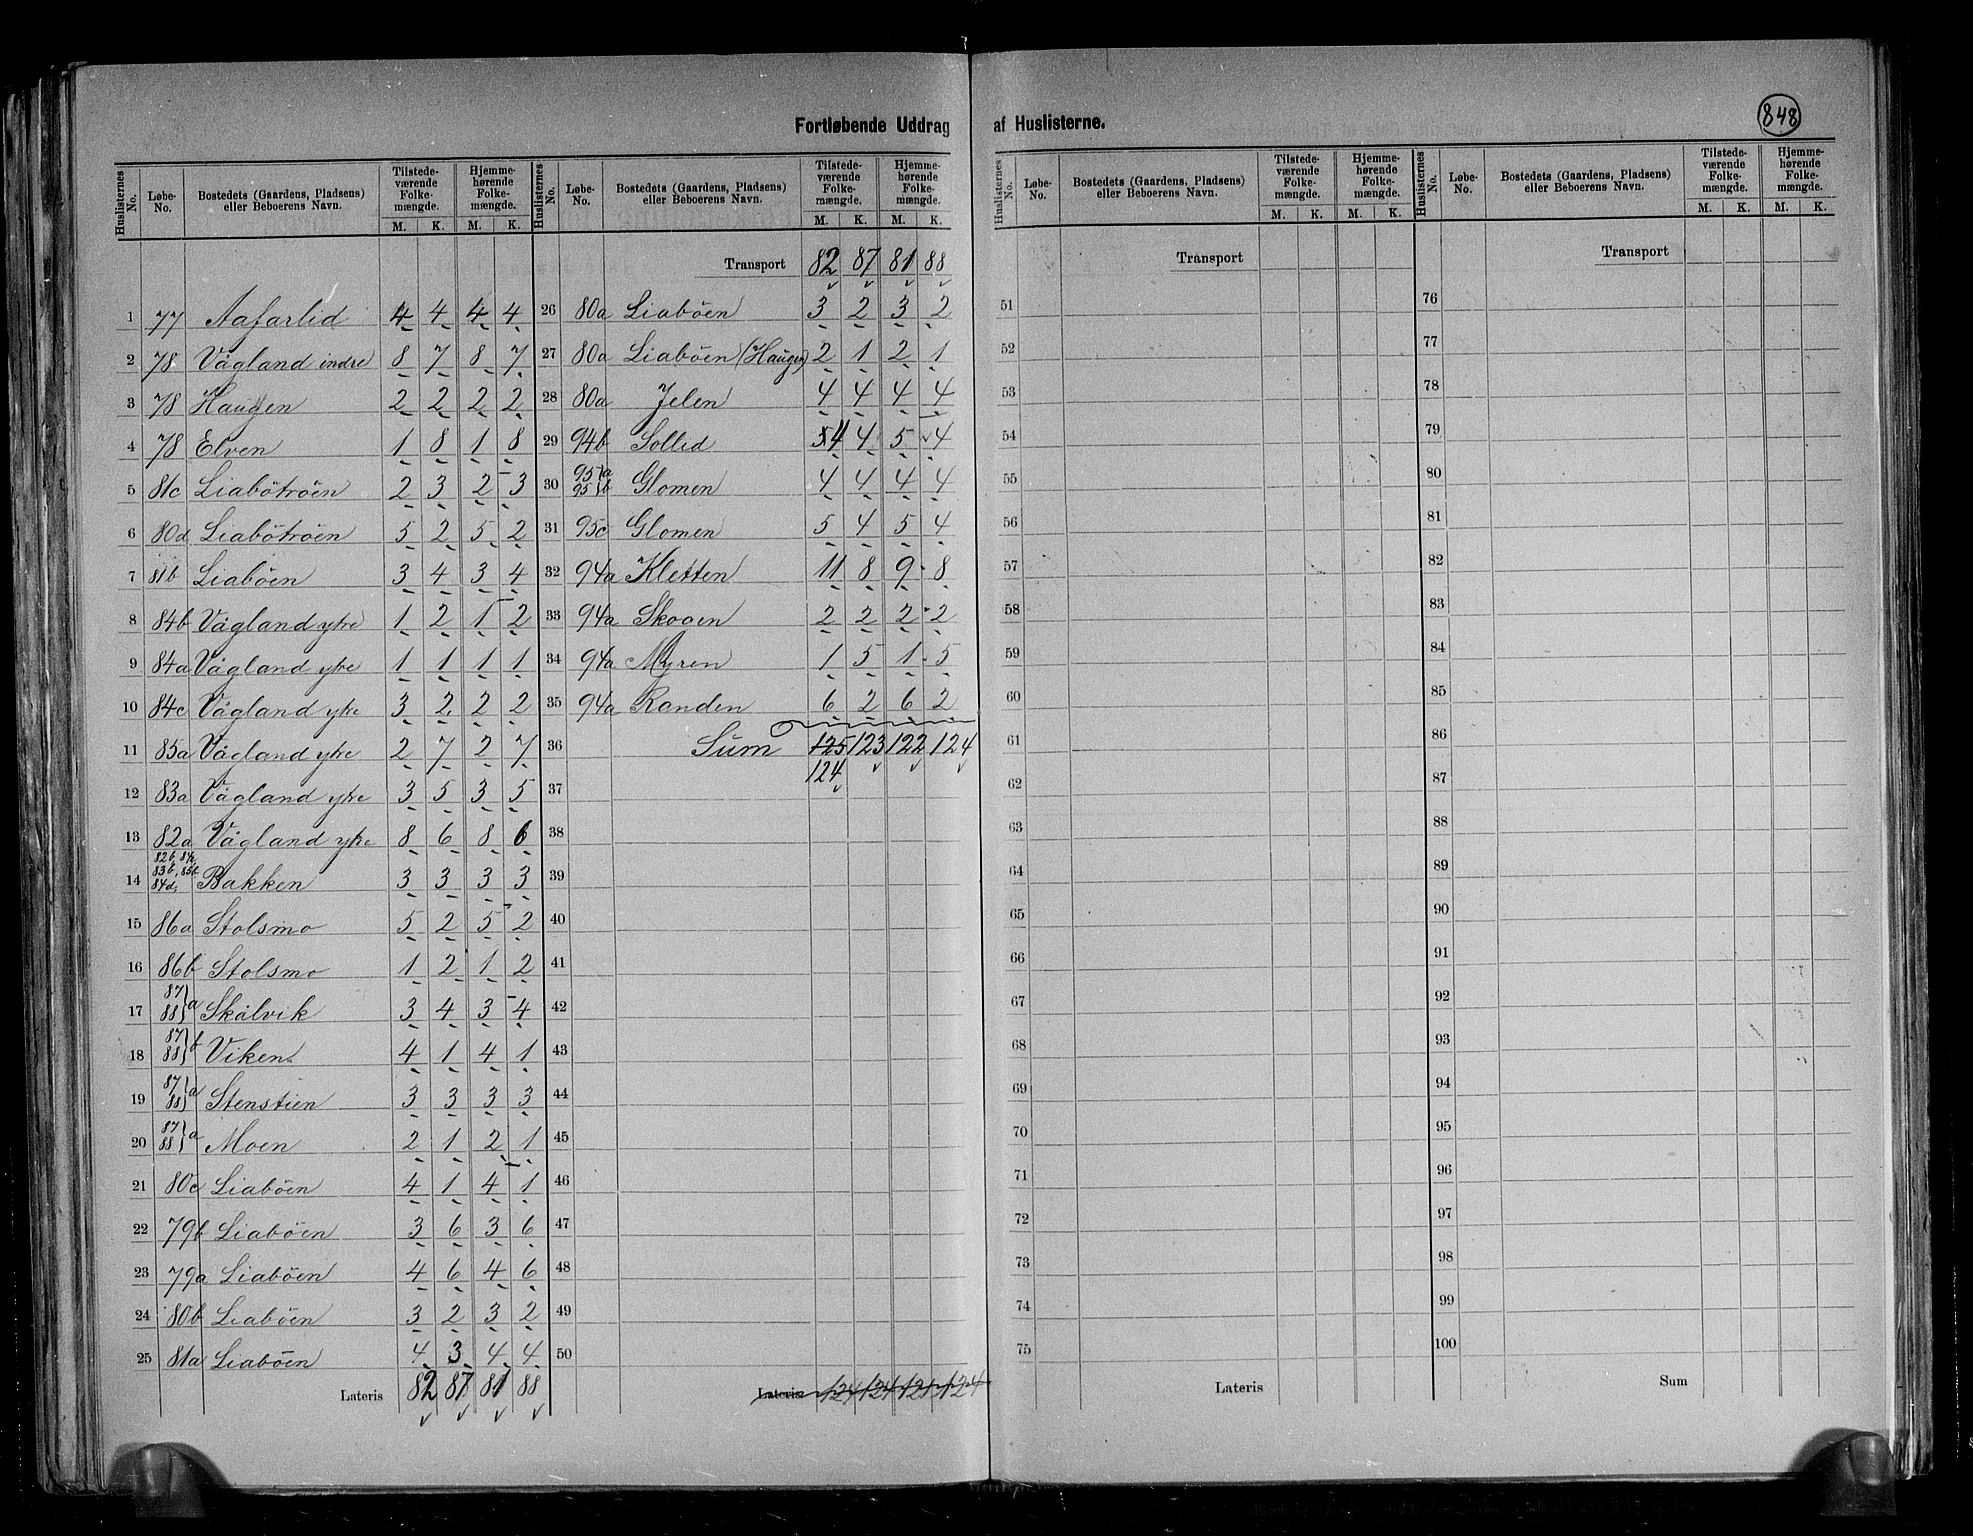 848
Fortløbende Uddrag af Huslisterne.
Huslisternes No. Løbe-No. Bostedets (Gaardens, Pladsens) eller Beboerens Navn. Tilstede-værende Folke-mængde. M. K. Hjemme-hørende Folke-mængde. M. K.
1 77 Aafarlid 4 4 4 4
2 78 Vågland indre 8 7 8 7
3 78 Haugen 2 2 2 2
4 78 Elven 1 8 1 8
5 81c Liabötröen 2 3 2 3
6 80d Liabötröen 5 2 5 2
7 81b Liabøen 3 4 3 4
8 84b Vågland ytre 1 2 1 2
9 84a Vågland ytre 1 1 1 1
10 84c Vågland ytre 3 2 2 2
11 85a Vågland ytre 2 7 2 7
12 83a Vågland ytre 3 5 3 5
13 82a Vågland ytre 8 6 8 6
14 83b, 85b 84d, Bakken 3 3 3 3
15 86a Stolsmo 5 2 5 2
16 86b Stolsmo 1 2 1 2
17 87 88 a Skålvik 3 4 3 4
18 87 88 b Viken 4 1 4 1
19 87 88 a Stenstien 3 3 3 3
20 87 88 a Moen 2 1 2 1
21 80c Liabøen 4 1 4 1
22 79b Liabøen 3 6 3 6
23 79a Liabøen 4 6 4 6
24 80b Liabøen 3 2 3 2
25 81a Liabøen 4 3 4 4
Lateris 82 87 81 88
Huslisternes No. Løbe-No. Bostedets (Gaardens, Pladsens) eller Beboerens Navn. Tilstede-værende Folke-mængde. M. K. Hjemme-hørende Folke-mængde. M. K.
Transport 82 87 81 88
26 80a Liabøen 3 2 3 2
27 80a Liabøen (Haugen) 2 1 2 1
28 80a Jelen 4 4 4 4
29 94b Sollid 5 4 4 5 4
30 95 a 95 b Glomen 4 4 4 4
31 95c Glomen 5 4 5 4
32 94a Kletten 11 8 9 8
33 94a Skogen 2 2 2 2
34 94a Myren 1 5 1 5
35 94a Randen 6 2 6 2
36 Sum 125 123 122 124
124
37
38
39
40
41
42
43
44
45
46
47
48
49
50
Lateris 124 124 121 124
Huslisternes No. Løbe-No. Bostedets (Gaardens, Pladsens) eller Beboerens Navn. Tilstede-værende Folke-mængde. M. K. Hjemme-hørende Folke-mængde. M. K.
Transport
51
52
53
54
55
56
57
58
59
60
61
62
63
64
65
66
67
68
69
70
71
72
73
74
75
Lateris
Huslisternes No. Løbe-No. Bostedets (Gaardens, Pladsens) eller Beboerens Navn. Tilstede-værende Folke-mængde. M. K. Hjemme-hørende Folke-mængde. M. K.
Transport
76
77
78
79
80
81
82
83
84
85
86
87
88
89
90
91
92
93
94
95
96
97
98
99
100
Sum